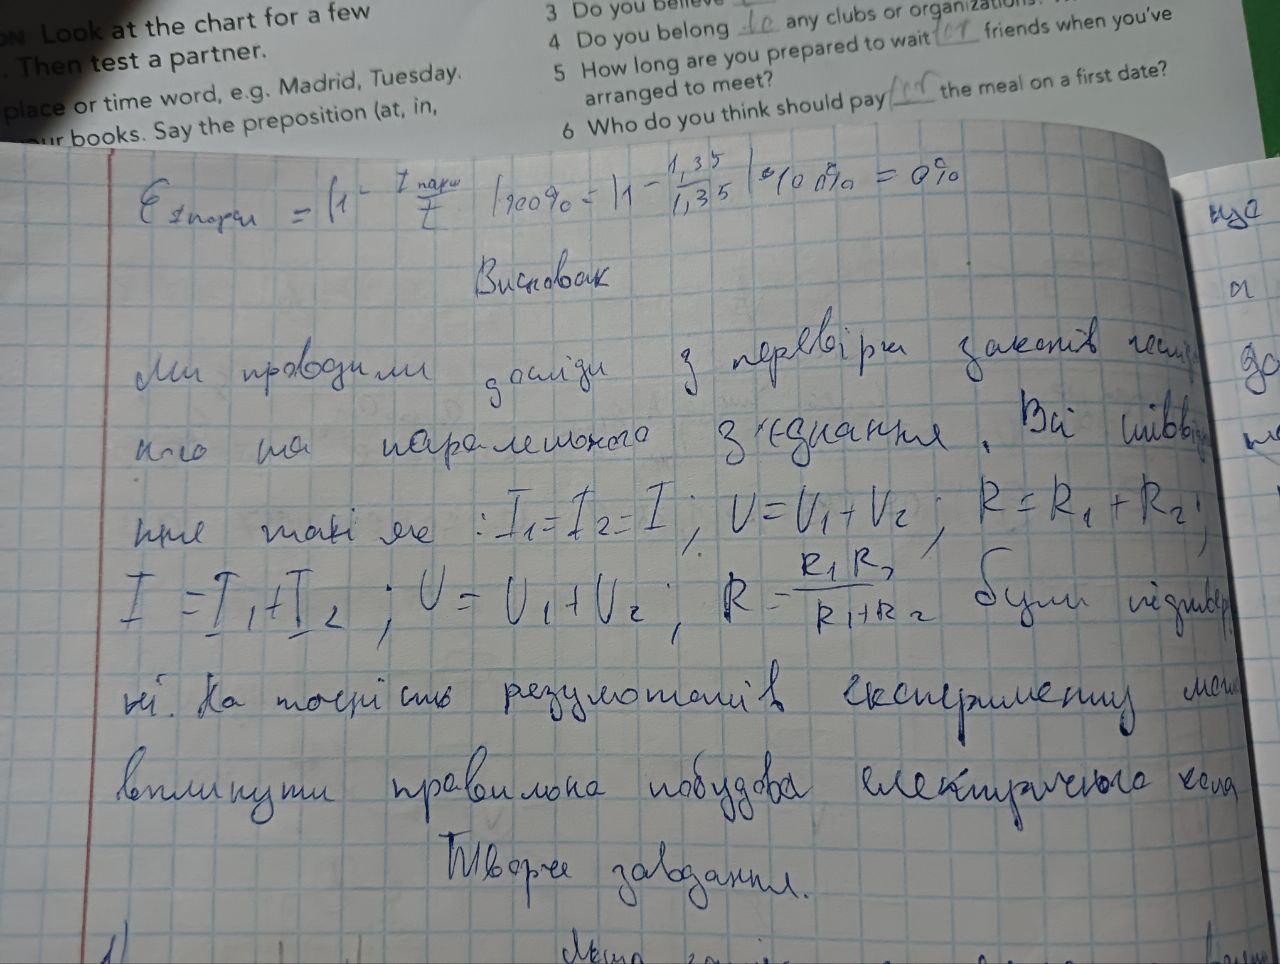 Look at the chart for a few
. Then test a partner.
place or time word, e.g. Madrid, Tuesday.
books. Say the preposition (at, in,
3 Do you believe
4 Do you belong to any clubs or organizations?
5 How long are you prepared to wait for friends when you've
arranged to meet?
6 Who do you think should pay for the meal on a first date?
= |1 - I / I |100% = |1 - 1,35 / 1,35| • 100% = 0%
Висновок
Ми проводили досліди з перевірки законів
та паралельного з'єднання. Всі співвідно
ння такі як : I₁ = I₂ = I ; U = U₁ + U₂ ; R = R₁ + R₂ ;
I = I₁ + I₂ ; U = U₁ + U₂ ; R = R₁ R₂ / R₁ + R₂ були підтвер
ні. На точність результатів експерименту
вплинути правильна побудова електричного кола
Творче завдання.
1)